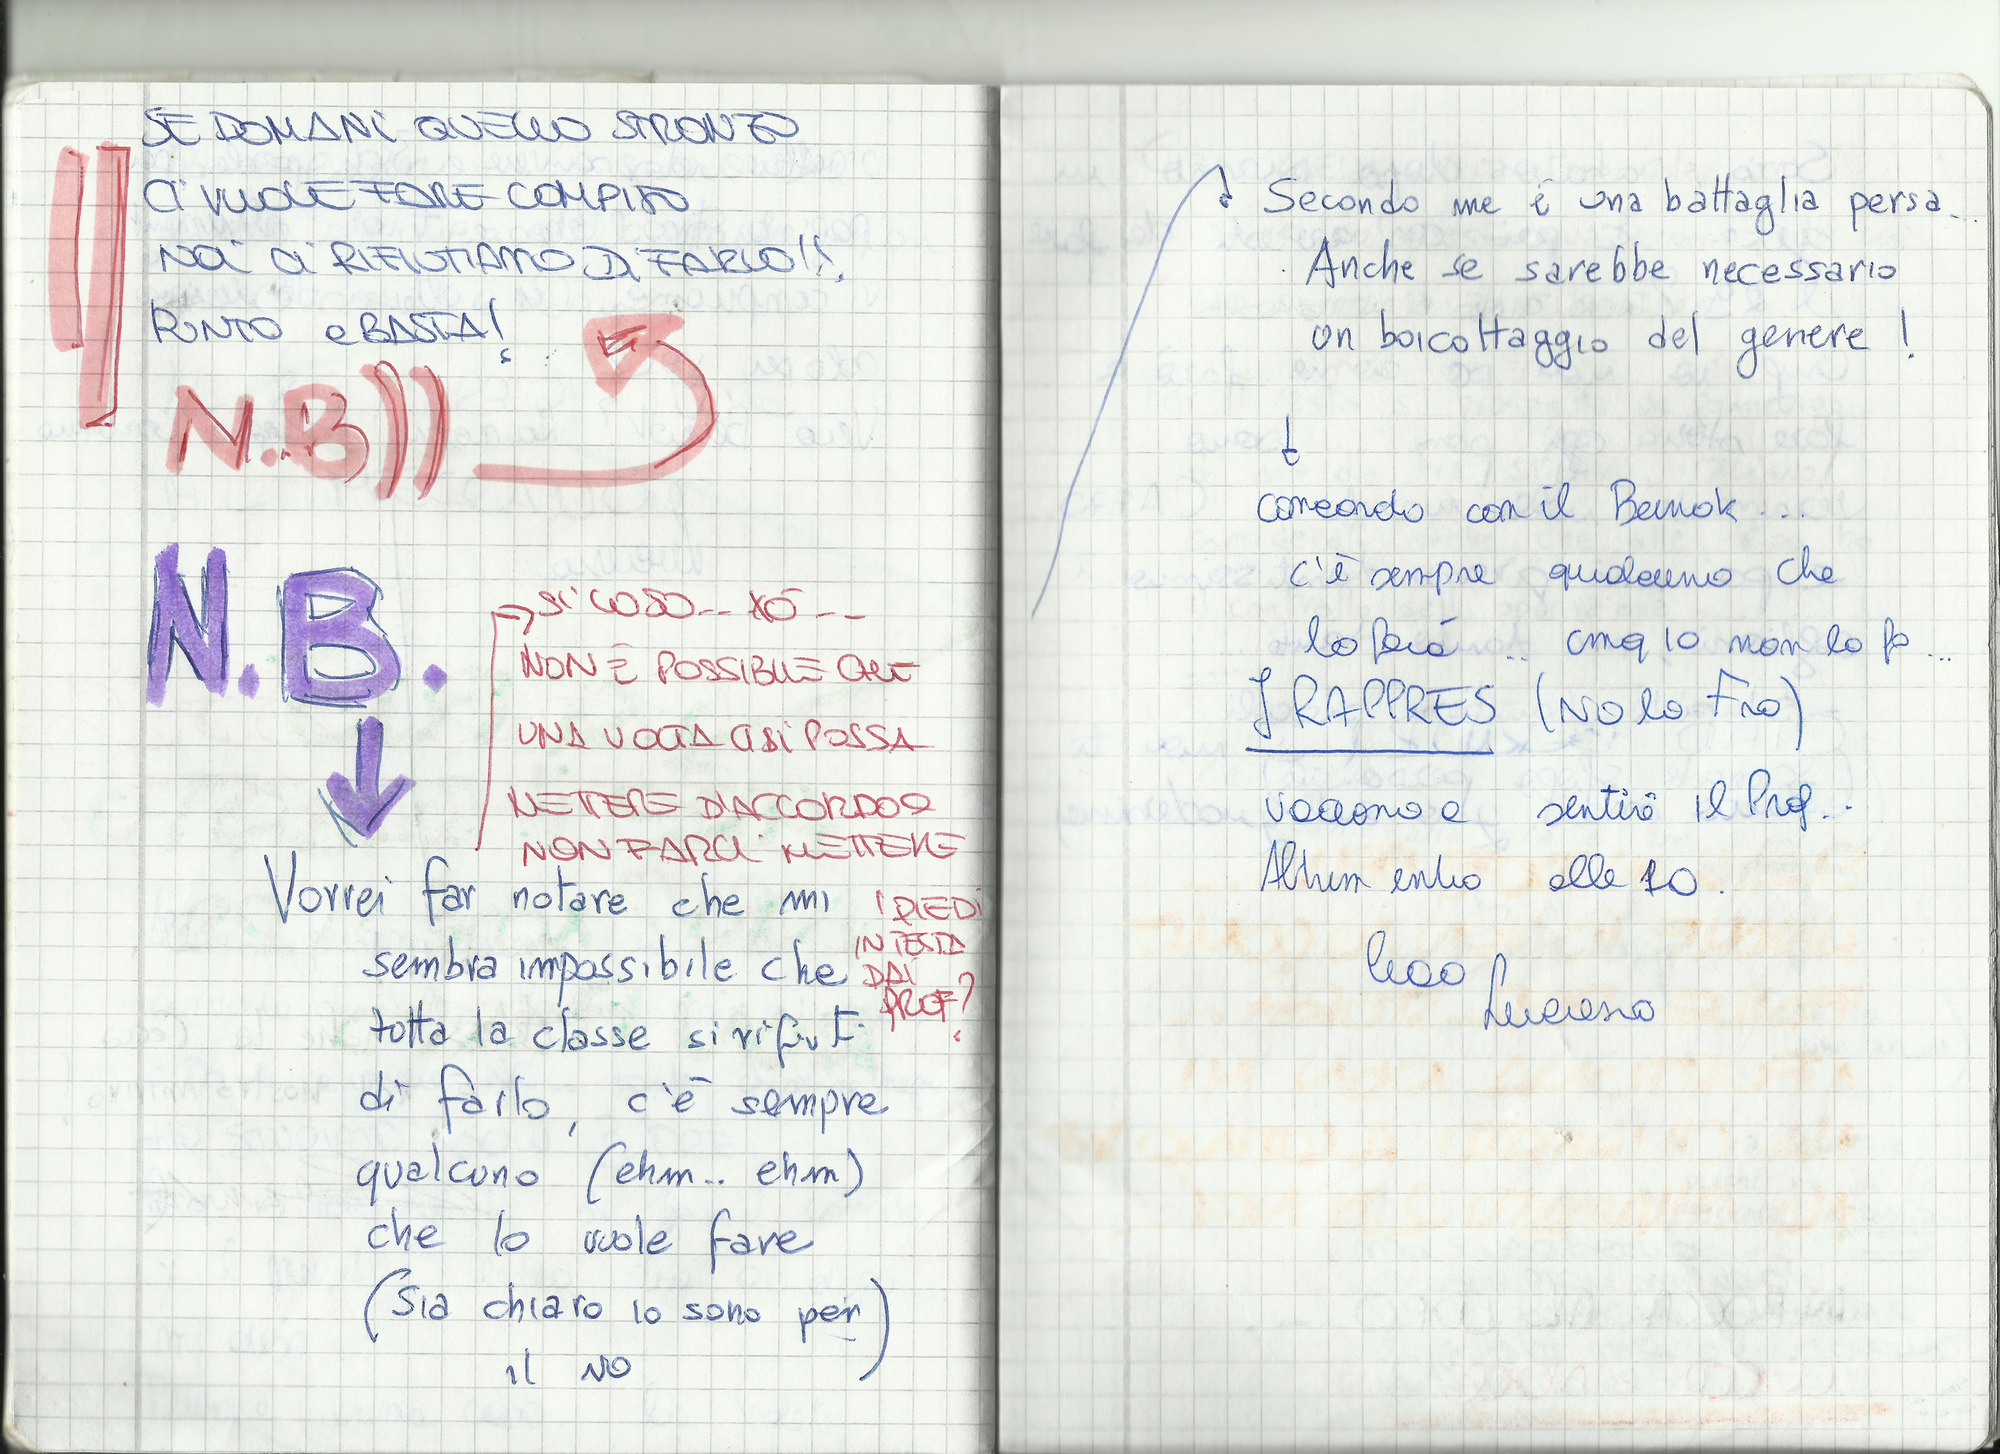 SE DOMANI QUELLO STRONZO
CI VUOLE FARE COMPITO
NOI CI RIFIUTIAMO DI FARLO!!!
PUNTO e BASTA!
N.B))
N.B.
SI COSO... XÓ --
NON È POSSIBILE CHE
UNA VOLTA CI SI POSSA
METTERE D'ACCORDO X
NON FARCI METTERE
I PIEDI
IN TESTA
DAI
PROF?
Vorrei far notare che mi
sembra impossibile che
tutta la classe si rifiuti
di farlo, c'è sempre
qualcuno (ehm.. ehm)
che lo vuole fare
(Sia chiaro io sono per)
il NO
Secondo me è una battaglia persa...
Anche se sarebbe necessario
un boicottaggio del genere!
concordo con il ...
c'è sempre qualcuno che
lo farà .. cmq io non lo fo...
I RAPPRES (NO lo Fro)
vadano a sentire il Prof..
Altrim entro alle 10.
Ciao
Luciano